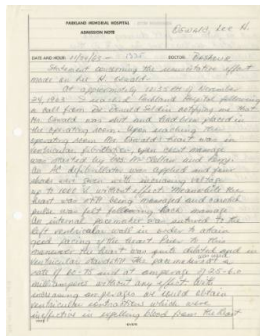 PARKLAND MEMORIAL HOSPITAL
ADMISSION NOTE
Oswald, Lee H.
DATE AND HOUR 11/24/63 DOCTOR: Bashour
Statement concerning the resuscitative effort
made on Lee H. Oswald
At approximately November
24, 1963 I reached Parkland Hospital following
a call from Dr. notifying me that
Mr Oswald was shot and had been placed in
the operating room. Upon reaching the
operating room Mr. Oswald's heart was in
ventricular fibrillation, open chest massage
was started by Drs. McClelland and Perry.
An AC defibrillator was applied and four
shocks were given with increasing voltage
up to without effect. Meanwhile the
heart was still being massaged and carotid
pulse was felt following each massage.
An internal pacemaker was sutured to the
left ventricular wall in order to attain
good pacing of the heart. Prior to this
maneuver the heart was quite dilated and in
ventricular standstill. The pacemaker at a
rate of and at amperage of
milliamperes without any effect. With
increasing amperages we could obtain
ventricular contractions which were
ineffective in expelling blood from the heart